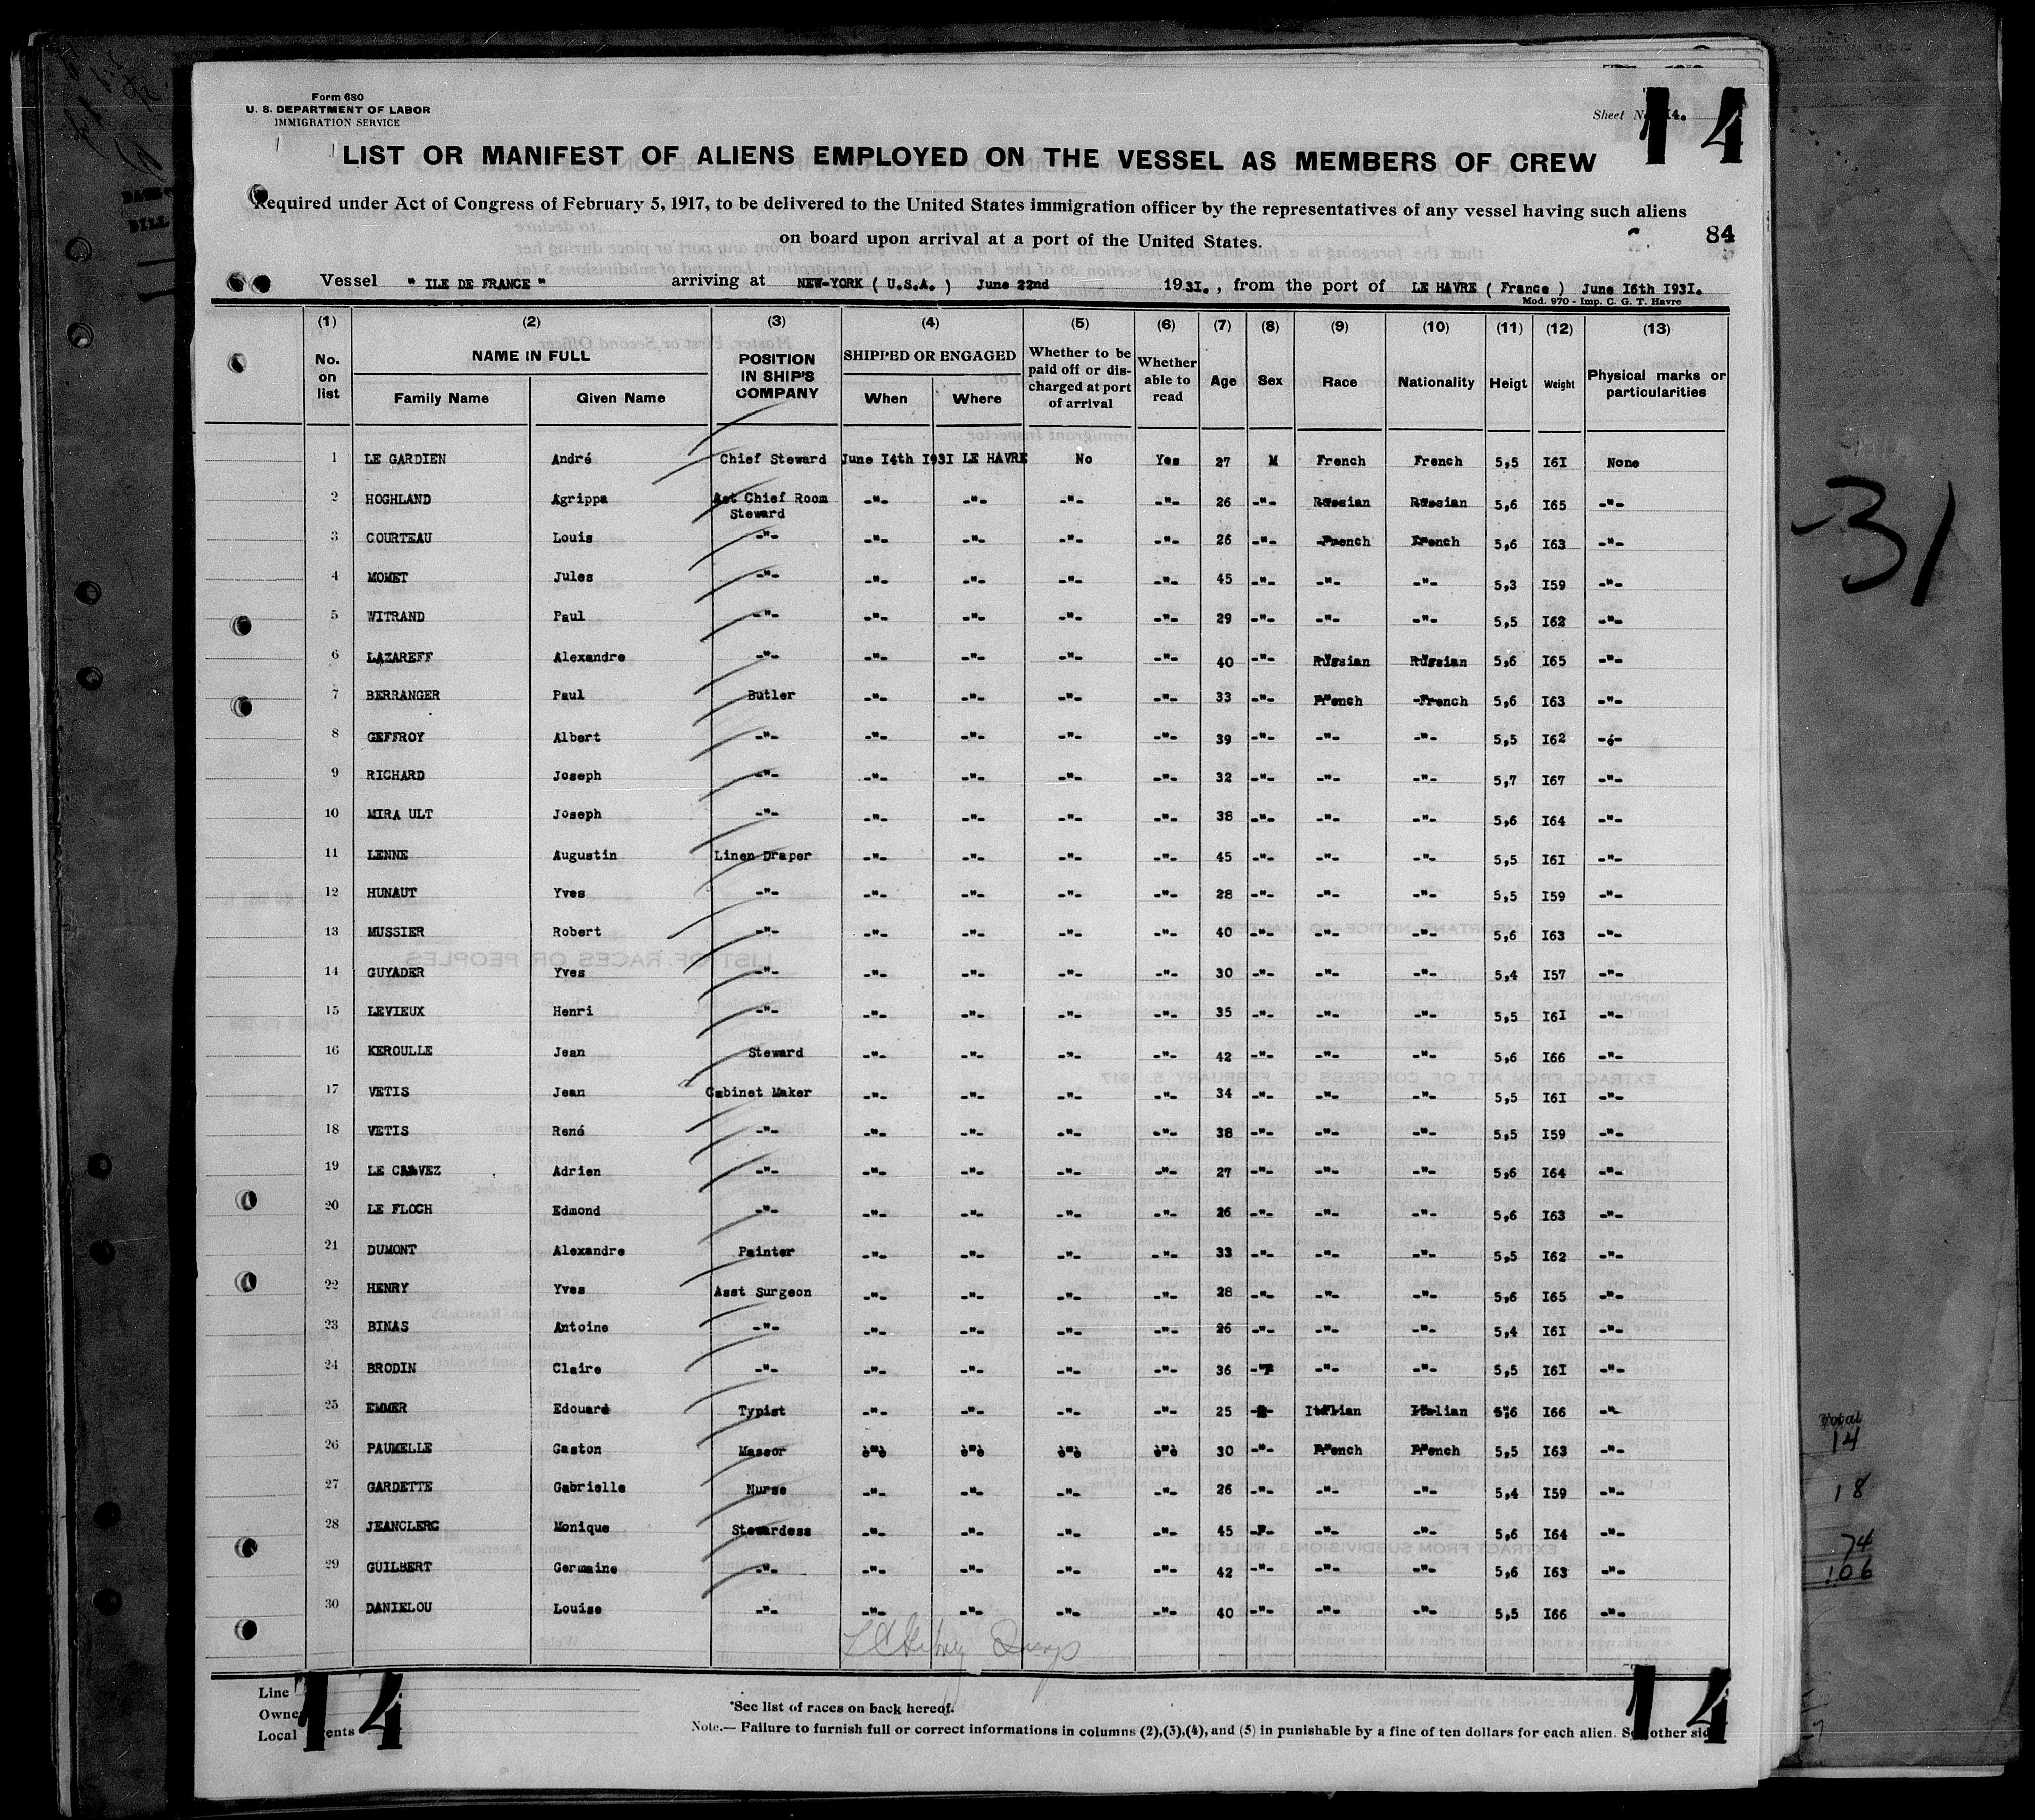 Form 680
U. S. DEPARTMENT OF LABOR
IMMIGRATION SERVICE
Sheet No 14.
14
LIST OR MANIFEST OF ALIENS EMPLOYED ON THE VESSEL AS MEMBERS OF CREW
Required under Act of Congress of February 5, 1917, to be delivered to the United States immigration officer by the representatives of any vessel having such aliens
on board upon arrival at a port of the United States.
84
Vessel " ILE DE FRANCE " arriving at NEW-YORK ( U.S.A. ) June 22nd 1931. , from the port of LE HAVRE ( France ) June 16th 1931.
Mod. 970 - Imp. C. G. T. Havre
(1) (2) (3) (4) (5) (6) (7) (8) (9) (10) (11) (12) (13)
No. on list NAME IN FULL Family Name Given Name POSITION IN SHIP'S COMPANY SHIPPED OR ENGAGED When Where Whether to be paid off or discharged at port of arrival Whether able to read Age Sex Race Nationality Heigt Weight Physical marks or particularities
1 LE GARDIEN André Chief Steward June 14th 1931 LE HAVRE No Yes 27 M French French 5,5 161 None
2 HOGHLAND Agrippa Ast Chief Room Steward -"- -"- -"- -"- 26 -"- Russian Russian 5,6 165 -"-
3 COURTEAU Louis -"- -"- -"- -"- -"- 26 -"- French French 5,6 163 -"-
4 MOMET Jules -"- -"- -"- -"- -"- 45 -"- -"- -"- 5,3 159 -"-
5 WITRAND Paul -"- -"- -"- -"- -"- 29 -"- -"- -"- 5,5 162 -"-
6 LAZAREFF Alexandre -"- -"- -"- -"- -"- 40 -"- Russian Russian 5,6 165 -"-
7 BERRANGER Paul Butler -"- -"- -"- -"- 33 -"- French French 5,6 163 -"-
8 GEFFROY Albert -"- -"- -"- -"- -"- 39 -"- -"- -"- 5,5 162 -"-
9 RICHARD Joseph -"- -"- -"- -"- -"- 32 -"- -"- -"- 5,7 167 -"-
10 MIRA ULT Joseph -"- -"- -"- -"- -"- 38 -"- -"- -"- 5,6 164 -"-
11 LENNE Augustin Linen Draper -"- -"- -"- -"- 45 -"- -"- -"- 5,5 161 -"-
12 HUNAUT Yves -"- -"- -"- -"- -"- 28 -"- -"- -"- 5,5 159 -"-
13 MUSSIER Robert -"- -"- -"- -"- -"- 40 -"- -"- -"- 5,6 163 -"-
14 GUYADER Yves -"- -"- -"- -"- -"- 30 -"- -"- -"- 5,4 157 -"-
15 LEVIEUX Henri -"- -"- -"- -"- -"- 35 -"- -"- -"- 5,5 161 -"-
16 KEROULLE Jean Steward -"- -"- -"- -"- 42 -"- -"- -"- 5,6 166 -"-
17 VETIS Jean Cabinet Maker -"- -"- -"- -"- 34 -"- -"- -"- 5,5 161 -"-
18 VETIS René -"- -"- -"- -"- -"- 38 -"- -"- -"- 5,5 159 -"-
19 LE CALVEZ Adrien -"- -"- -"- -"- -"- 27 -"- -"- -"- 5,6 164 -"-
20 LE FLOCH Edmond -"- -"- -"- -"- -"- 26 -"- -"- -"- 5,6 163 -"-
21 DUMONT Alexandre Painter -"- -"- -"- -"- 33 -"- -"- -"- 5,5 162 -"-
22 HENRY Yves Asst Surgeon -"- -"- -"- -"- 28 -"- -"- -"- 5,6 165 -"-
23 BINAS Antoine -"- -"- -"- -"- -"- 26 -"- -"- -"- 5,4 161 -"-
24 BRODIN Claire -"- -"- -"- -"- -"- 36 F -"- -"- 5,5 161 -"-
25 EMMER Edouard Typist -"- -"- -"- -"- 25 Italian Italian 5,6 166 -"-
26 PAUMELLE Gaston Massor è"è è"è è"è è"è 30 -"- French French 5,5 163 -"-
27 GARDETTE Gabrielle Nurse -"- -"- -"- -"- 26 -"- -"- -"- 5,4 159 -"-
28 JEANCLERC Monique Stewardess -"- -"- -"- -"- 45 -F- -"- -"- 5,6 164 -"-
29 GUILBERT Germaine -"- -"- -"- -"- -"- 42 -"- -"- -"- 5,6 163 -"-
30 DANIELOU Louise -"- -"- -"- -"- -"- 40 -"- -"- -"- 5,5 166 -"-
Line
Owne
Local ents
14
*See list of races on back hereof.
Note.— Failure to furnish full or correct informations in columns (2),(3),(4), and (5) in punishable by a fine of ten dollars for each alien. See other sid
14
31
Total
14
18
74
106